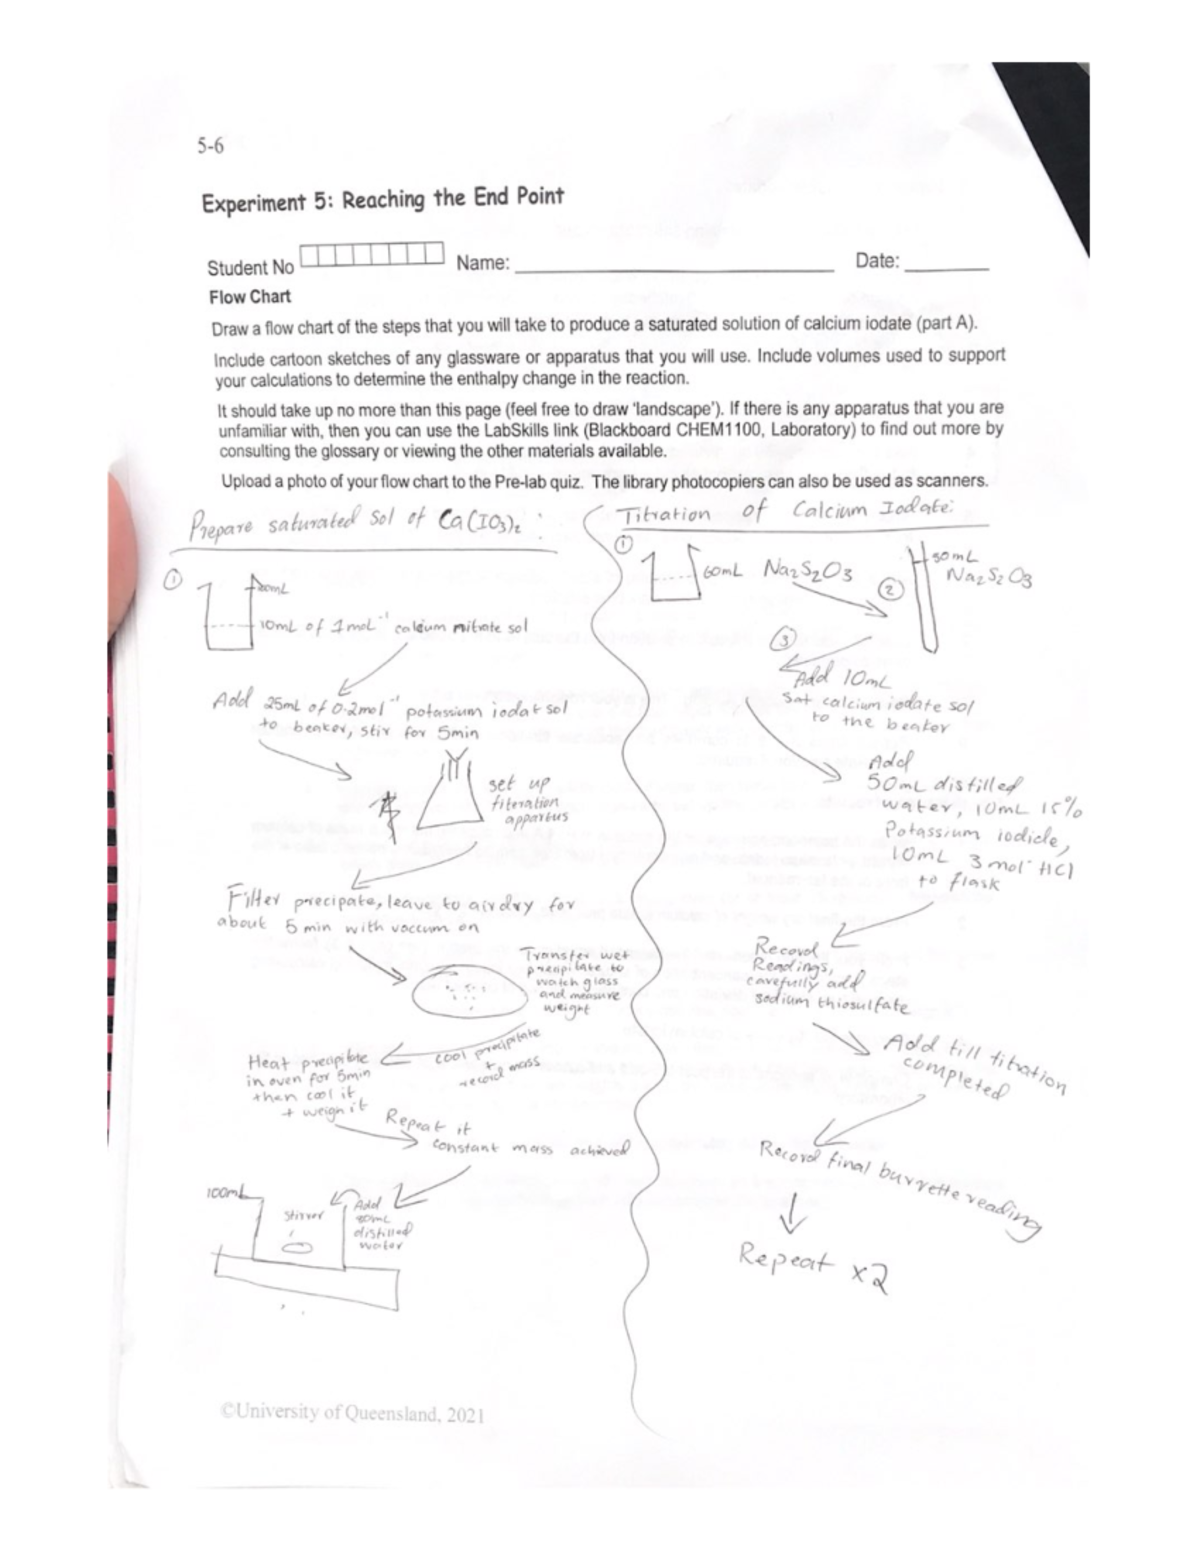 5-6
Experiment 5: Reaching the End Point
Student No Name: Date:
Flow Chart
Draw a flow chart of the steps that you will take to produce a saturated solution of calcium iodate (part A).
Include cartoon sketches of any glassware or apparatus that you will use. Include volumes used to support
your calculations to determine the enthalpy change in the reaction.
It should take up no more than this page (feel free to draw 'landscape'). If there is any apparatus that you are
unfamiliar with, then you can use the LabSkills link (Blackboard CHEM1100, Laboratory) to find out more by
consulting the glossary or viewing the other materials available.
Upload a photo of your flow chart to the Pre-lab quiz. The library photocopiers can also be used as scanners.
Prepare saturated sol of Ca(IO3)2 :
1
10mL of 1mol⁻¹ calcium nitrate sol
Add 25mL of 0.2mol⁻¹ potassium iodat sol
to beaker, stir for 5min
set up
filteration
appartus
Filter precipate, leave to airdry for
about 5 min with vaccum on
Transfer wet
precipitate to
watch glass
and measure
weight
cool precipitate
+
record mass
Heat precipible
in oven for 5min
then cool it
+ weigh it
Repeat it
constant mass achieved
100mL
stirrer
Add
80mL
distilled
water
Titration of Calcium Iodate:
1
60mL Na2S2O3
2
50mL
Na2S2O3
3
Add 10mL
Sat calcium iodate sol
to the beaker
Add
50mL distilled
water, 10mL 15%
Potassium iodide,
10mL 3mol⁻ HCl
to flask
Record
Readings,
carefully add
sodium thiosulfate
Add till titration
completed
Record final burrette reading
Repeat x2
©University of Queensland, 2021